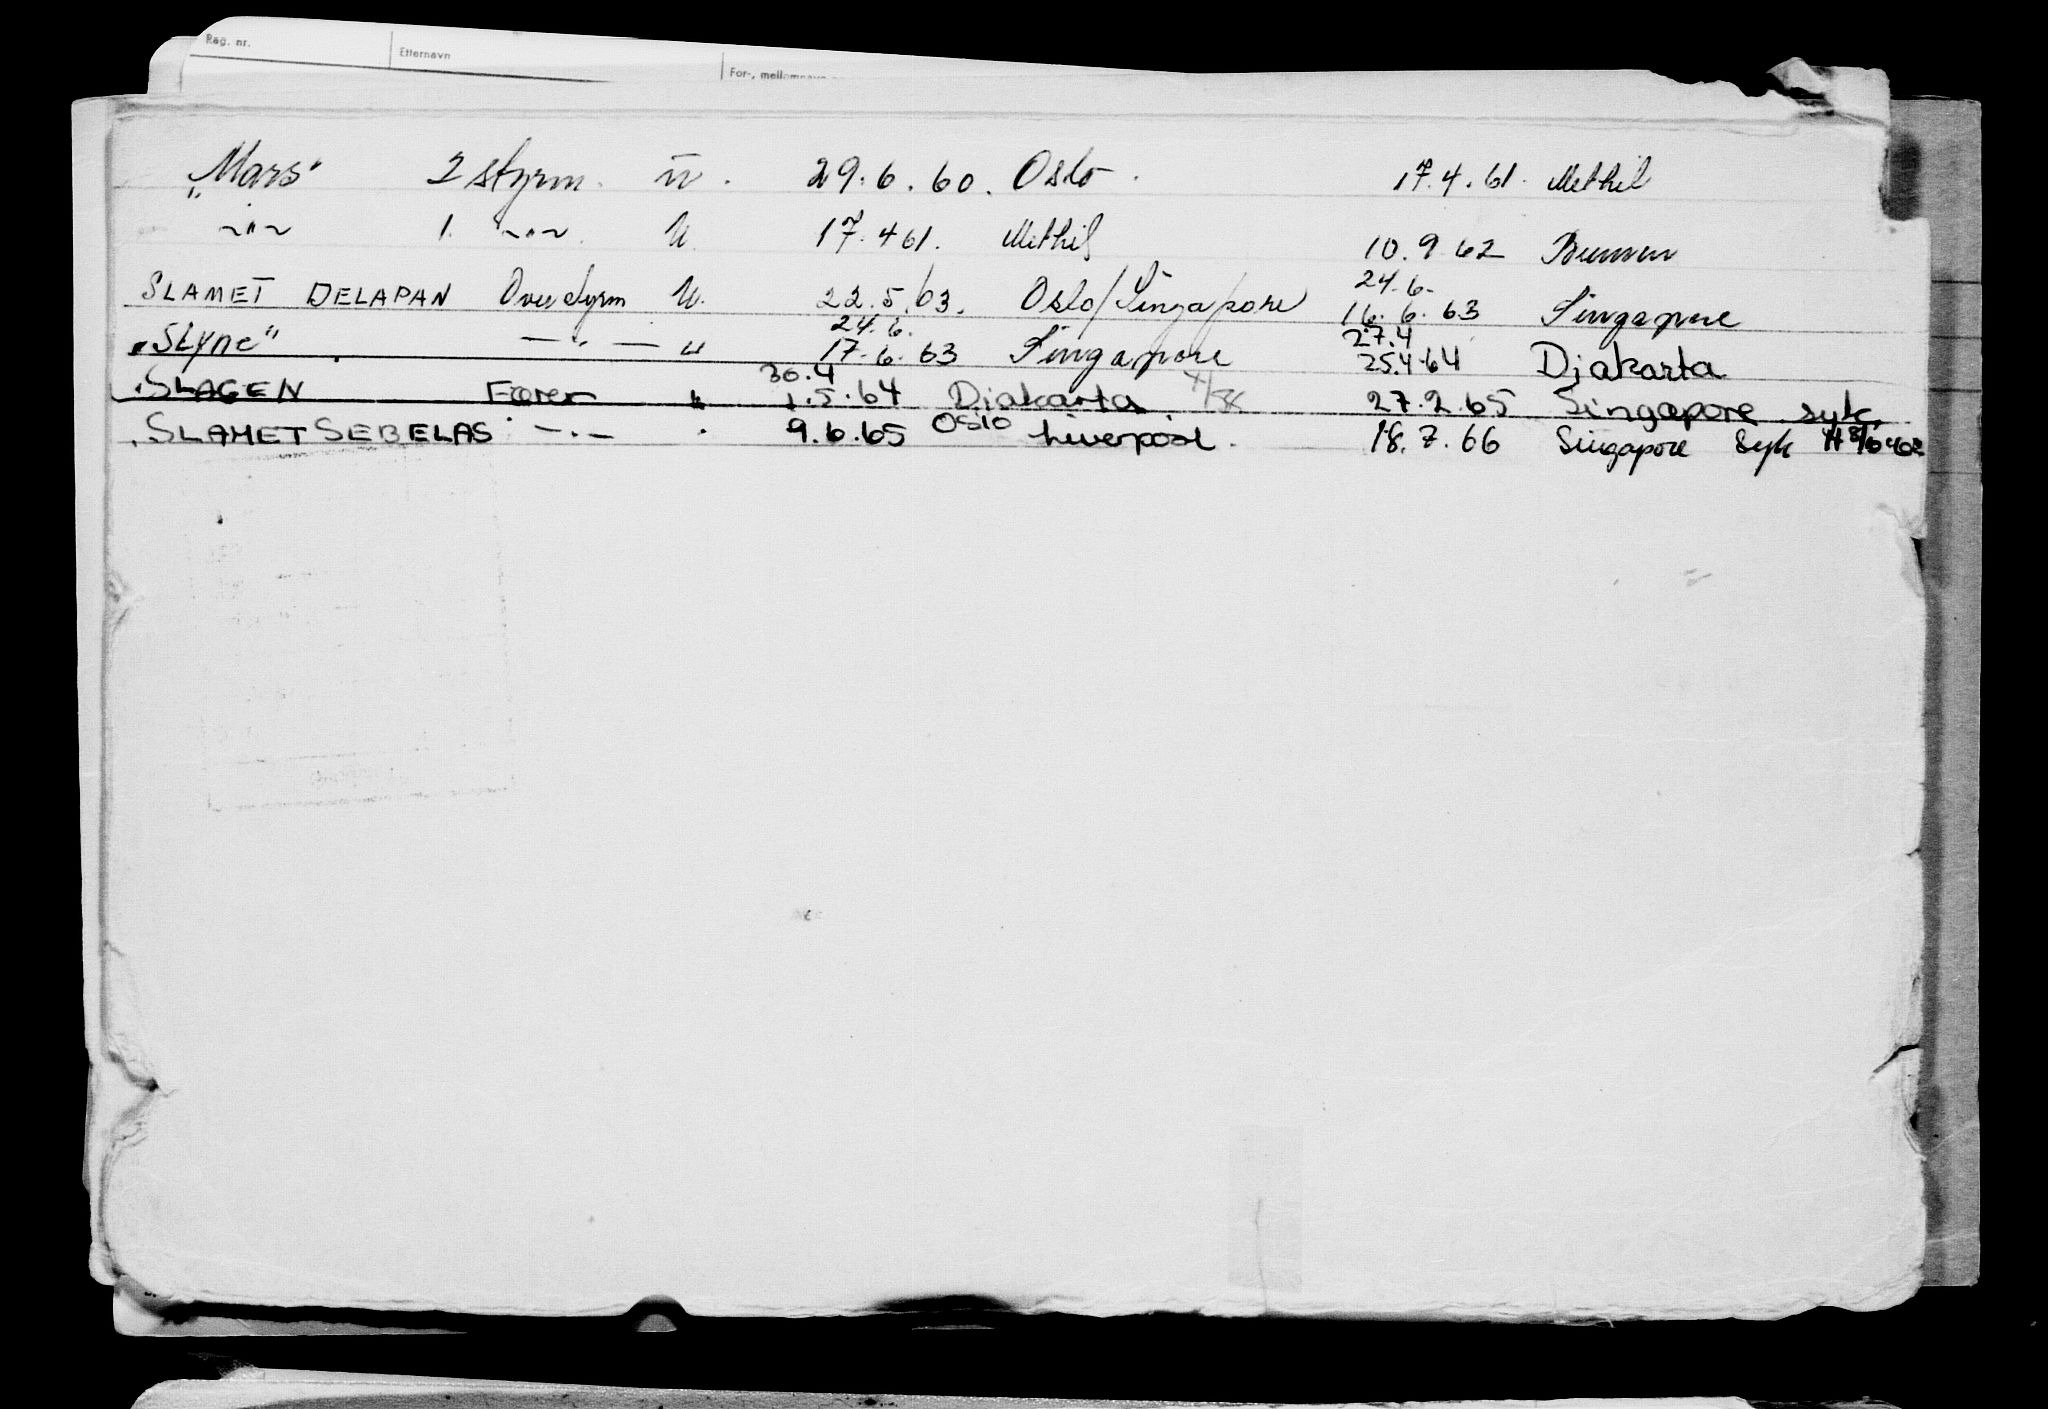 Rag. nr. Etternavn For-, mellomnavn
„Mars" 2 styrm. u. 29.6.60. Oslo. 17.4.61. Methil
~"~ 1. ~"~ u. 17.4 61. Methil 10.9.62 Bremen
24.6.
SLAMET DELAPAN Overstyrm u. 22.5.63. Oslo/Singapore 16.6.63 Singapore
24.6. 27.4
„Slyne" — " — " 17.6.63 Singapore 25.4.64 Djakarta
30.4
SLAGEN Fører " 1.5.64 Djakarta 27.2.65 Singapore syk.
SLAMET SEBELAS — . — . 9.6.65 Oslo Liverpool. 18.7.66 Singapore syk